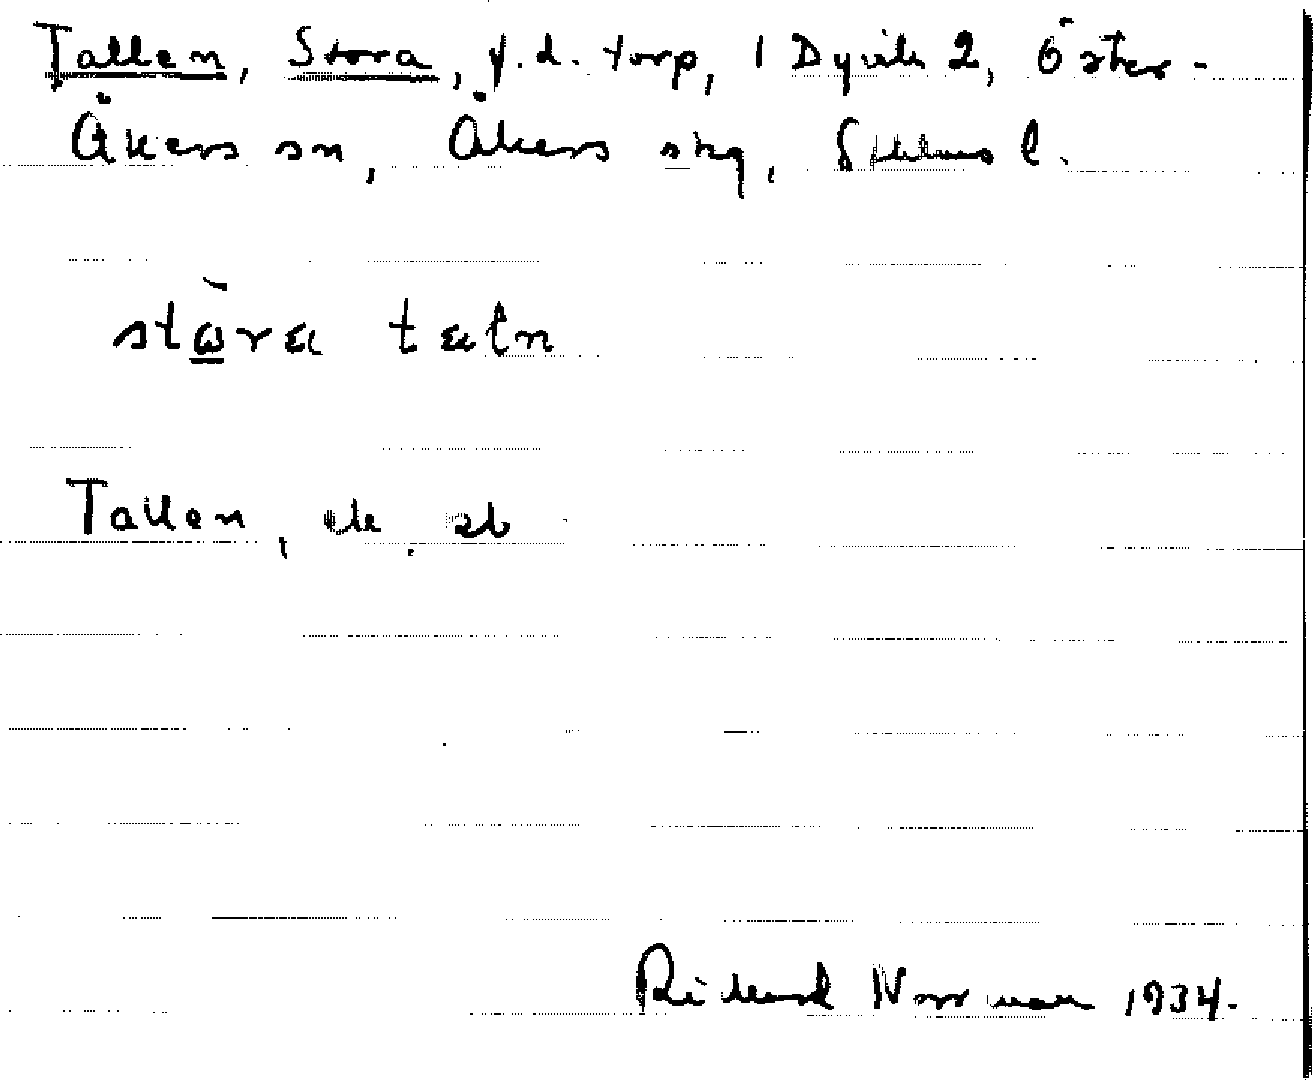 Tallen, Stora, f.d. torp, 1 Dyvik 2, Öster-
Åkers sn, Åkers skg, Sthlms l.
stὼra taln
Tallen, ek. bl
Rickard Norrman 1934.